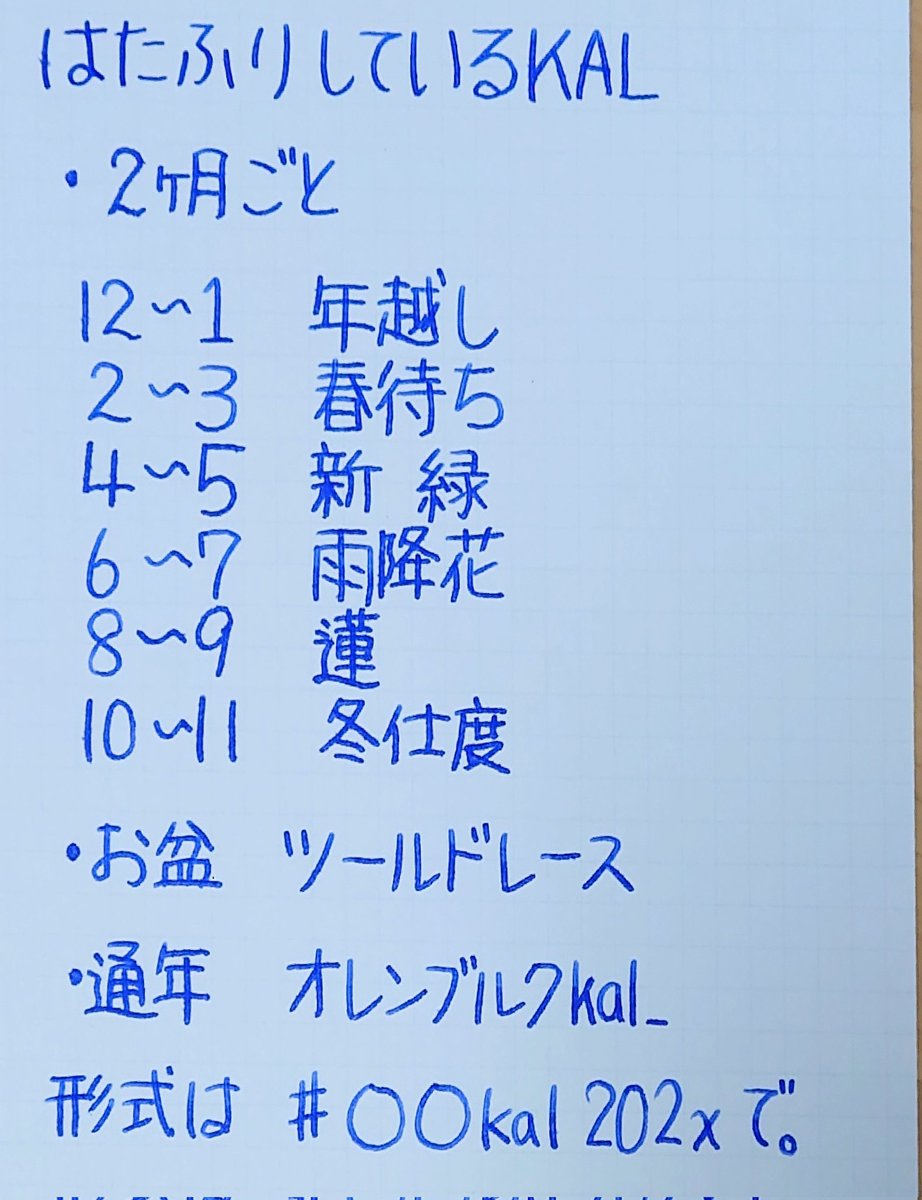 はたふりしているKAL
・2ヶ月ごと
12〜1 年越し
2〜3 春待ち
4〜5 新緑
6〜7 雨降花
8〜9 蓮
10〜11 冬仕度
・お盆 ツールドレース
・通年 オレンブルクkal_
形式は #〇〇kal202xで。